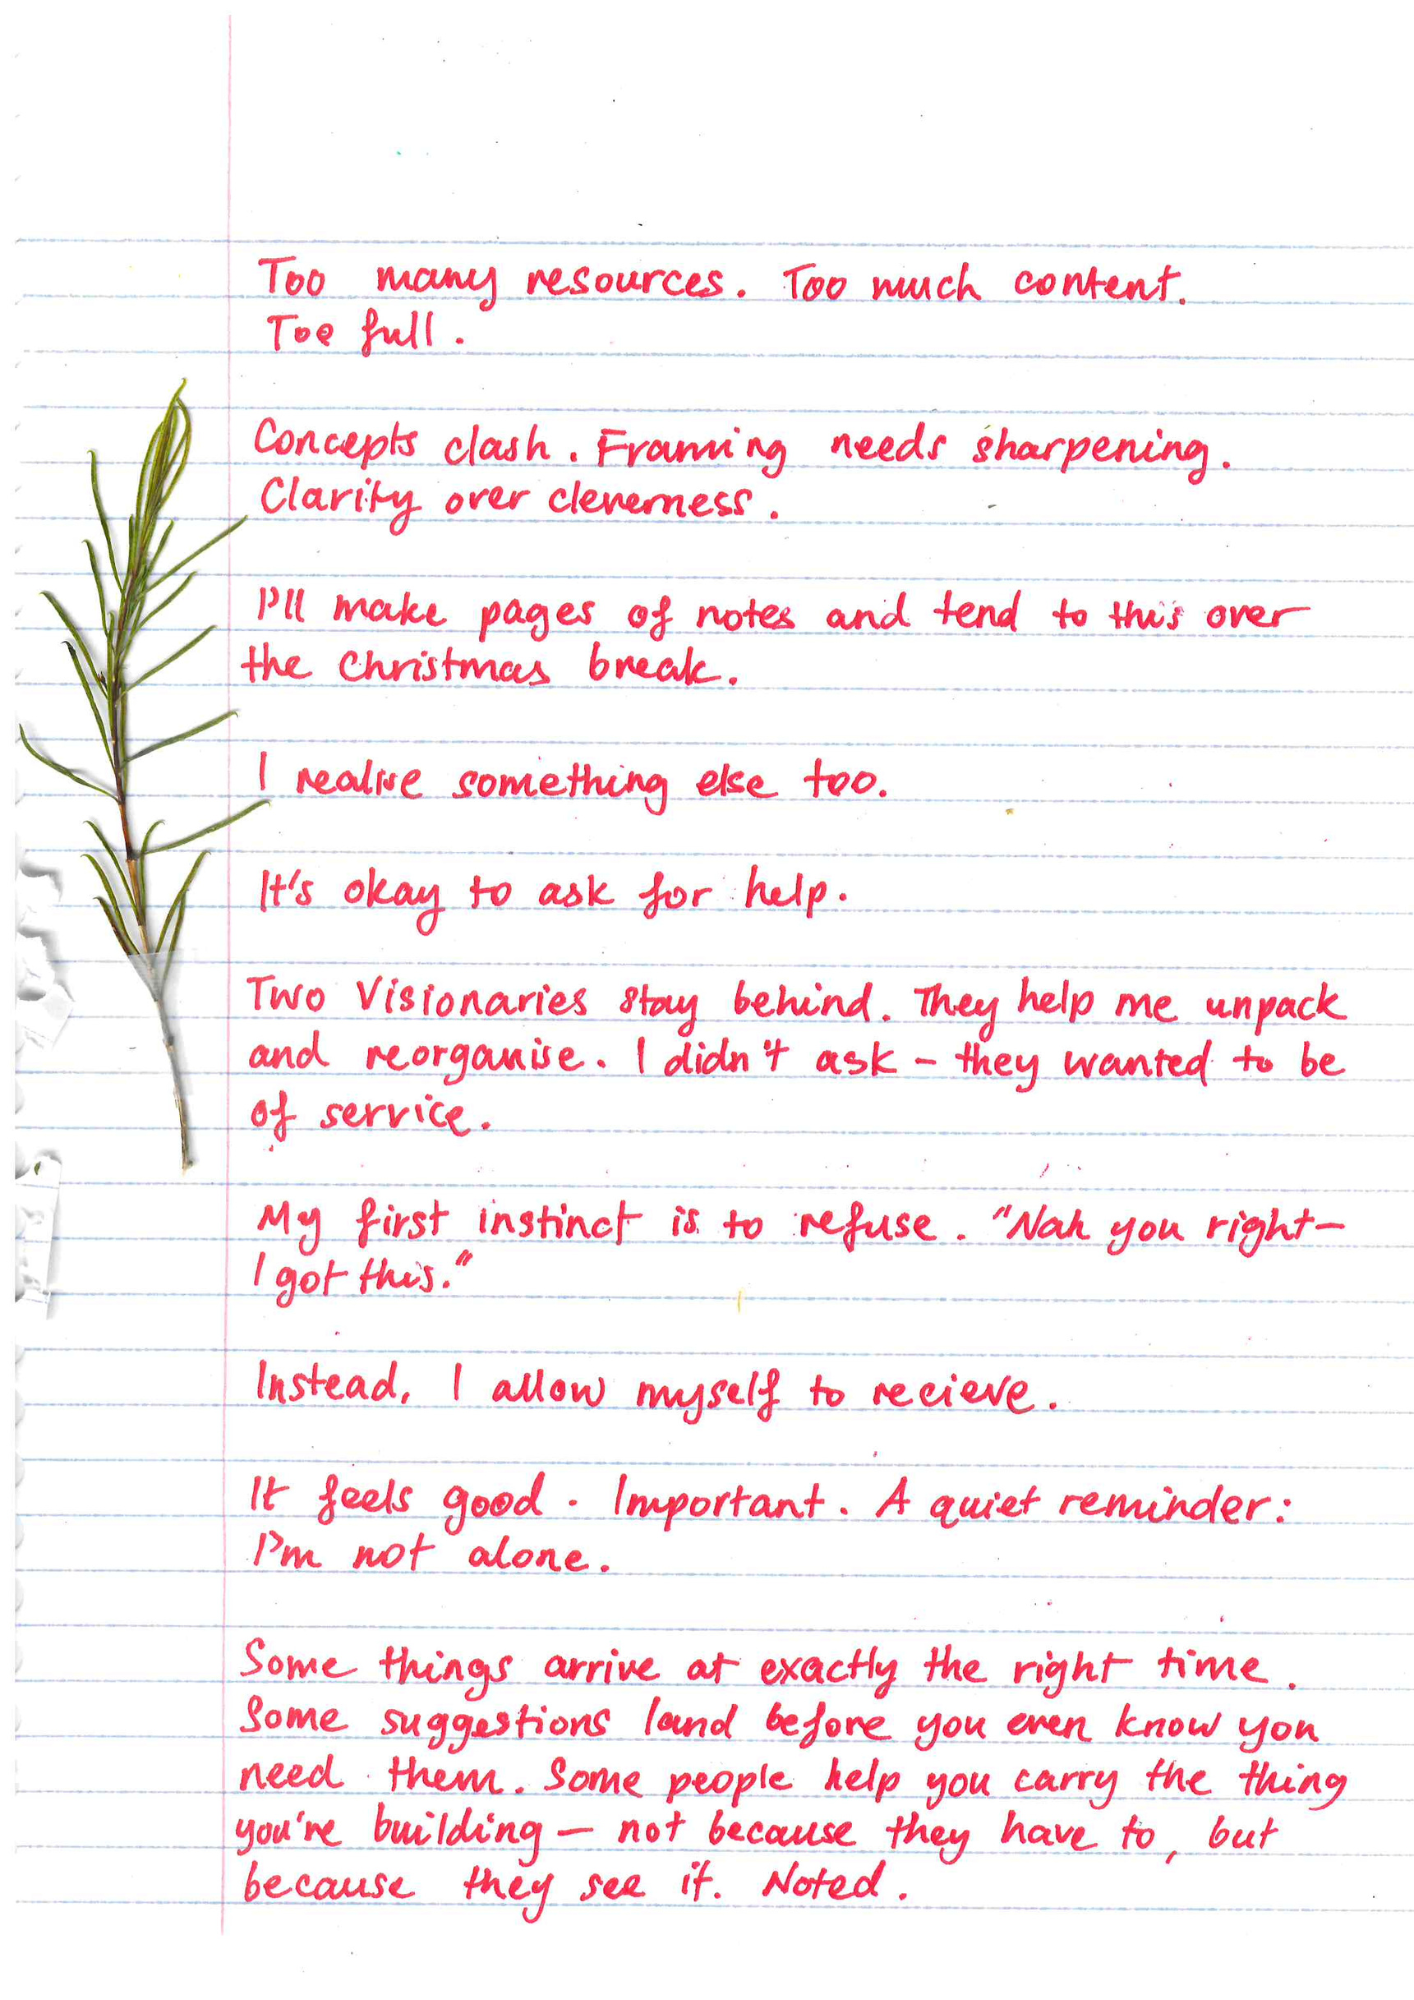 Too many resources. Too much content.
Too full.
Concepts clash. Framing needs sharpening.
Clarity over cleverness.
I'll make pages of notes and tend to this over
the Christmas break.
I realise something else too.
It's okay to ask for help.
Two Visionaries stay behind. They help me unpack
and reorganise. I didn't ask – they wanted to be
of service.
My first instinct is to refuse. "Nah you right –
I got this."
Instead, I allow myself to recieve.
It feels good. Important. A quiet reminder:
I'm not alone.
Some things arrive at exactly the right time.
Some suggestions land before you even know you
need them. Some people help you carry the thing
you're building – not because they have to, but
because they see it. Noted.